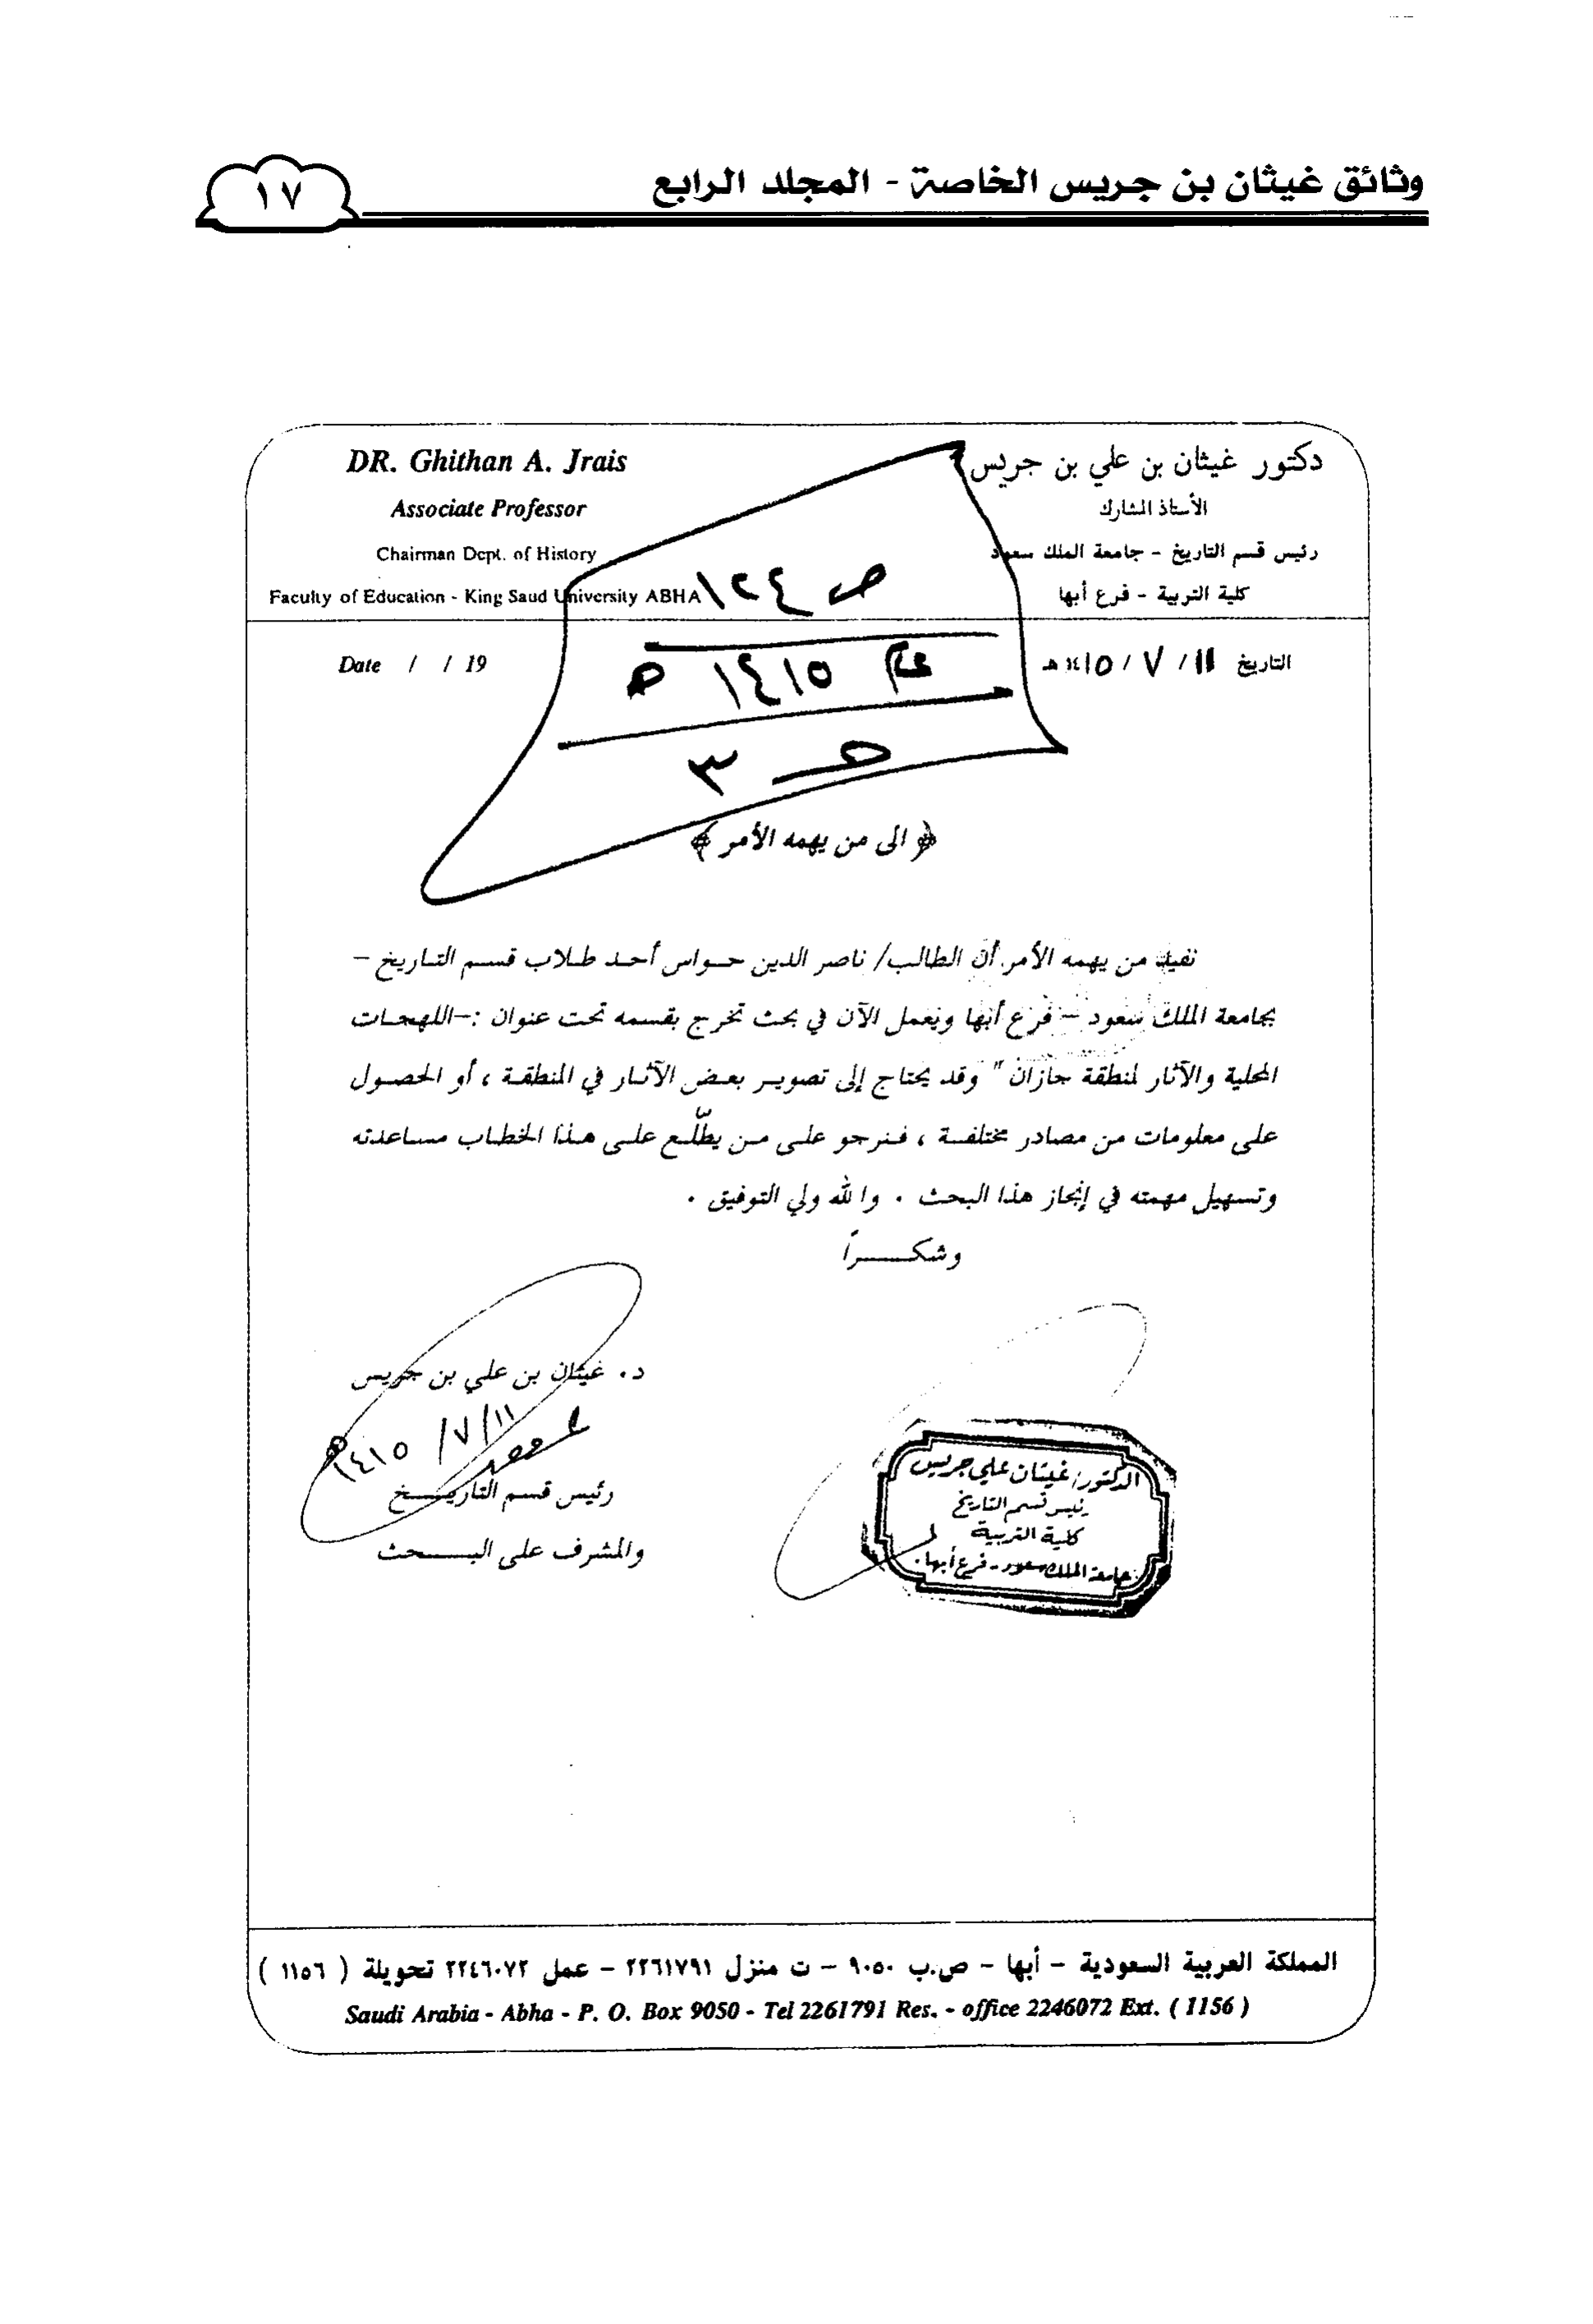 وثائق غيثان بن جريس الخاصة - المجلد الرابع
١٧
دكتور غيثان بن علي بن جريس
الأستاذ المشارك
رئيس قسم التاريخ - جامعة الملك سعود
كلية التربية - فرع أبها
DR. Ghithan A. Jrais
Associate Professor
Chairman Dept. of History
Faculty of Education - King Saud University ABHA
التاريخ ١١ / ٧ / ١٤١٥ هـ
Date / / 19
ص ١٢٤
عام ١٤١٥ هـ
٣
﴿ الى من يهمه الأمر ﴾
نفيد من يهمه الأمر أن الطالب/ ناصر الدين حواس أحد طلاب قسم التاريخ -
بجامعة الملك سعود - فرع أبها ويعمل الآن في بحث تخرج بقسمه تحت عنوان :-اللهجات
المحلية والآثار لمنطقة جازان " وقد يحتاج إلى تصوير بعض الآثار في المنطقة ، أو الحصول
على معلومات من مصادر مختلفة ، فنرجو على من يطّلع على هذا الخطاب مساعدته
وتسهيل مهمته في إنجاز هذا البحث . والله ولي التوفيق .
وشكراً
د . غيثان بن علي بن جريس
١١/ ٧/ ١٤١٥هـ
رئيس قسم التاريخ
والمشرف على البحث
الدكتور/ غيثان علي جريس
رئيس قسم التاريخ
كلية التربية
جامعة الملك سعود - فرع أبها
المملكة العربية السعودية - أبها - ص.ب ٩٠٥٠ - ت منزل ٢٢٦١٧٩١ - عمل ٢٢٤٦٠٧٢ تحويلة ( ١١٥٦ )
Saudi Arabia - Abha - P. O. Box 9050 - Tel 2261791 Res. - office 2246072 Ext. ( 1156 )